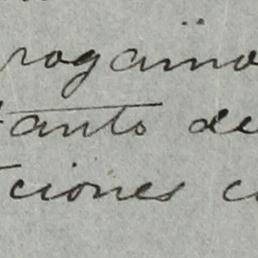 rogamo
tanto de
ciones c